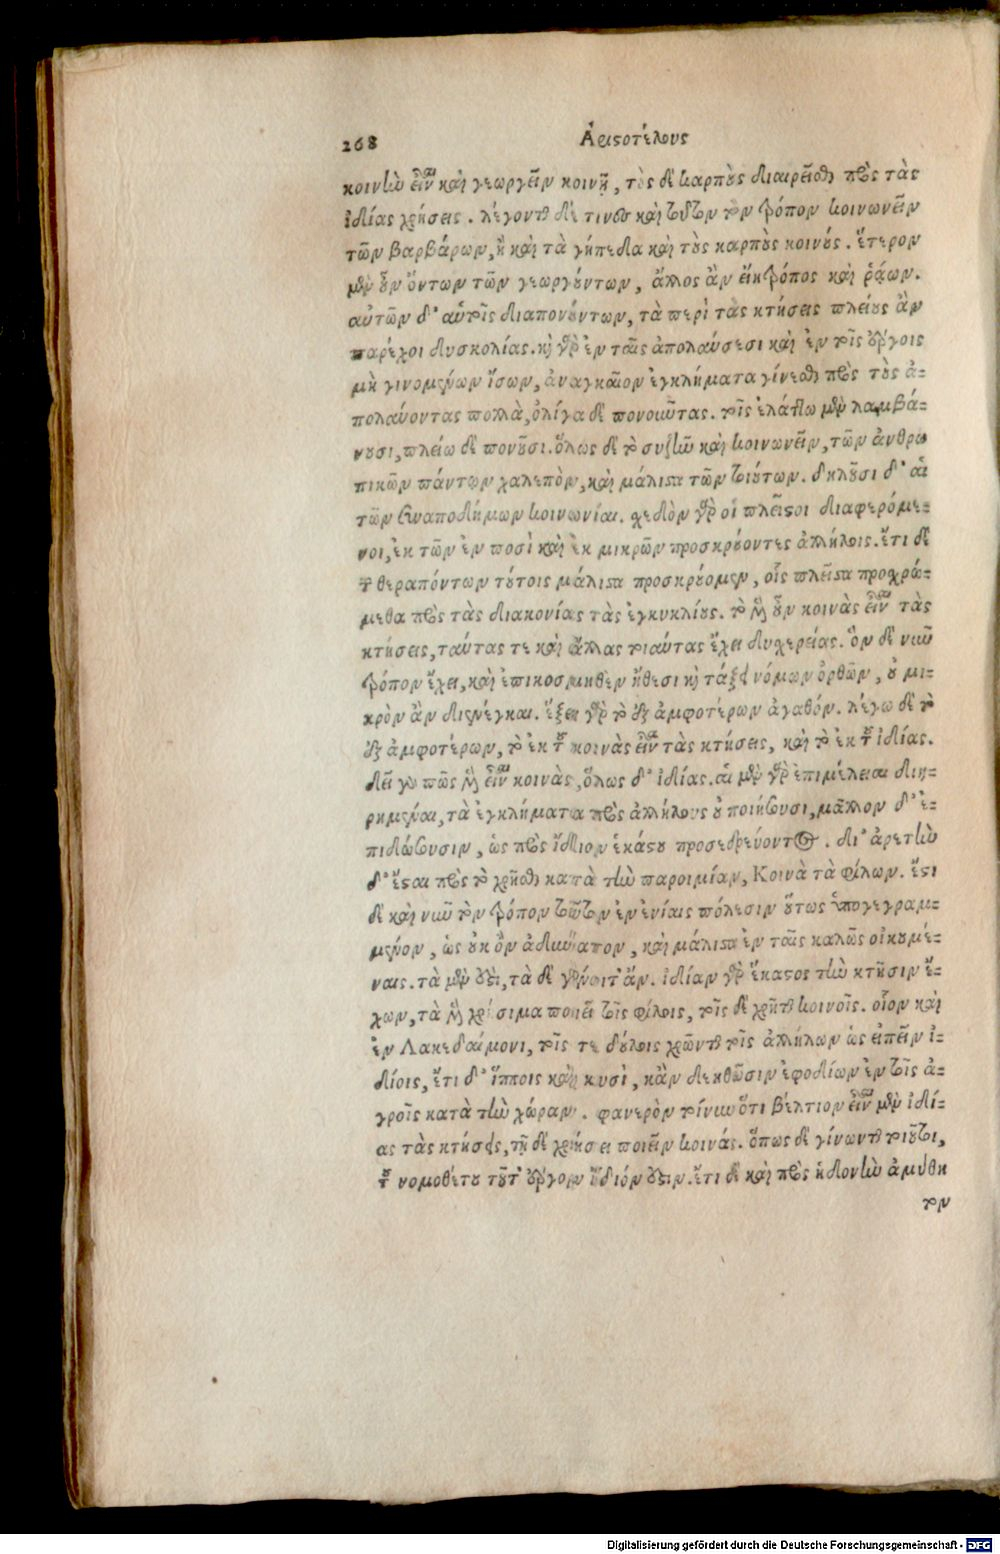 268
Ἀριστοτέλους
κοινὴν εἶναι καὶ γεωργεῖν κοινῇ, τοὺς δὲ καρποὺς διαιρεῖσθαι πρὸς τὰς
ἰδίας χρήσεις. λέγονται δέ τινες καὶ τοῦτον τὸν τρόπον κοινωνεῖν
τῶν βαρβάρων, ἢ καὶ τὰ γήπεδα καὶ τοὺς καρποὺς κοινούς. ἕτερον
μὲν οὖν ὄντων τῶν γεωργούντων, ἄλλος ἂν εἴη τρόπος καὶ ῥᾴων.
αὐτῶν δ' αὑτοῖς διαπονούντων, τὰ περὶ τὰς κτήσεις πλείους ἂν
παρέχοι δυσκολίας. καὶ γὰρ ἐν ταῖς ἀπολαύσεσι καὶ ἐν τοῖς ἔργοις
μὴ γινομένων ἴσων, ἀναγκαῖον ἐγκλήματα γίνεσθαι πρὸς τοὺς ἀ-
πολαύοντας πολλὰ, ὀλίγα δὲ πονοῦντας. τοῖς ἐλάττω μὲν λαμβά-
νουσι, πλείω δὲ πονοῦσι. ὅλως δὲ τὸ συζῆν καὶ κοινωνεῖν, τῶν ἀνθρω
πικῶν πάντων χαλεπὸν, καὶ μάλιστα τῶν τοιούτων. δηλοῦσι δ' αἱ
τῶν συναποδήμων κοινωνίαι. σχεδὸν γὰρ οἱ πλεῖστοι διαφερόμε-
νοι, ἐκ τῶν ἐν ποσὶ καὶ ἐκ μικρῶν προσκρούοντες ἀλλήλοις. ἔτι δὲ
τῶν θεραπόντων τούτοις μάλιστα προσκρούομεν, οἷς πλεῖστα προσχρώ-
μεθα πρὸς τὰς διακονίας τὰς ἐγκυκλίους. τὸ μὲν οὖν κοινὰς εἶναι τὰς
κτήσεις, ταύτας τε καὶ ἄλλας τοιαύτας ἔχει δυσχερείας. ὃν δὲ νῦν
τρόπον ἔχει, καὶ ἐπικοσμηθὲν ἤθεσι καὶ τάξει νόμων ὀρθῶν, οὐ μι-
κρὸν ἂν διενέγκαι. ἕξει γὰρ τὸ ἐξ ἀμφοτέρων ἀγαθόν. λέγω δὲ τὸ
ἐξ ἀμφοτέρων, τὸ ἐκ τοῦ κοινὰς εἶναι τὰς κτήσεις, καὶ τὸ ἐκ τοῦ ἰδίας.
δεῖ γάρ πως μὲν εἶναι κοινὰς, ὅλως δ' ἰδίας. αἱ μὲν γὰρ ἐπιμέλειαι διῃ-
ρημέναι, τὰ ἐγκλήματα πρὸς ἀλλήλους οὐ ποιήσουσι, μᾶλλον δ' ἐ-
πιδώσουσιν, ὡς πρὸς ἴδιον ἑκάστου προσεδρεύοντος. δι' ἀρετὴν
δ' ἔσται πρὸς τὸ χρῆσθαι κατὰ τὴν παροιμίαν, Κοινὰ τὰ φίλων. ἔστι
δὲ καὶ νῦν τὸν τρόπον τοῦτον ἐν ἐνίαις πόλεσιν οὕτως ὑπογεγραμ-
μένον, ὡς οὐκ ὂν ἀδύνατον, καὶ μάλιστα ἐν ταῖς καλῶς οἰκουμέ-
ναις. τὰ μὲν ἔστι, τὰ δὲ γένοιτ' ἄν. ἰδίαν γὰρ ἕκαστος τὴν κτῆσιν ἔ-
χων, τὰ μὲν χρήσιμα ποιεῖ τοῖς φίλοις, τοῖς δὲ χρῆται κοινοῖς. οἷον καὶ
ἐν Λακεδαίμονι, τοῖς τε δούλοις χρῶνται τοῖς ἀλλήλων ὡς εἰπεῖν ἰ-
δίοις, ἔτι δ' ἵπποις καὶ κυσὶ, κἂν δεηθῶσιν ἐφοδίων ἐν τοῖς ἀ-
γροῖς κατὰ τὴν χώραν. φανερὸν τοίνυν ὅτι βέλτιον εἶναι μὲν ἰδί-
ας τὰς κτήσεις, τῇ δὲ χρήσει ποιεῖν κοινάς. ὅπως δὲ γίνωνται τοιοῦτοι,
τοῦ νομοθέτου τοῦτ' ἔργον ἴδιόν ἐστιν. ἔτι δὲ καὶ πρὸς ἡδονὴν ἀμύθη
τον
Digitalisierung gefördert durch die Deutsche Forschungsgemeinschaft - DFG